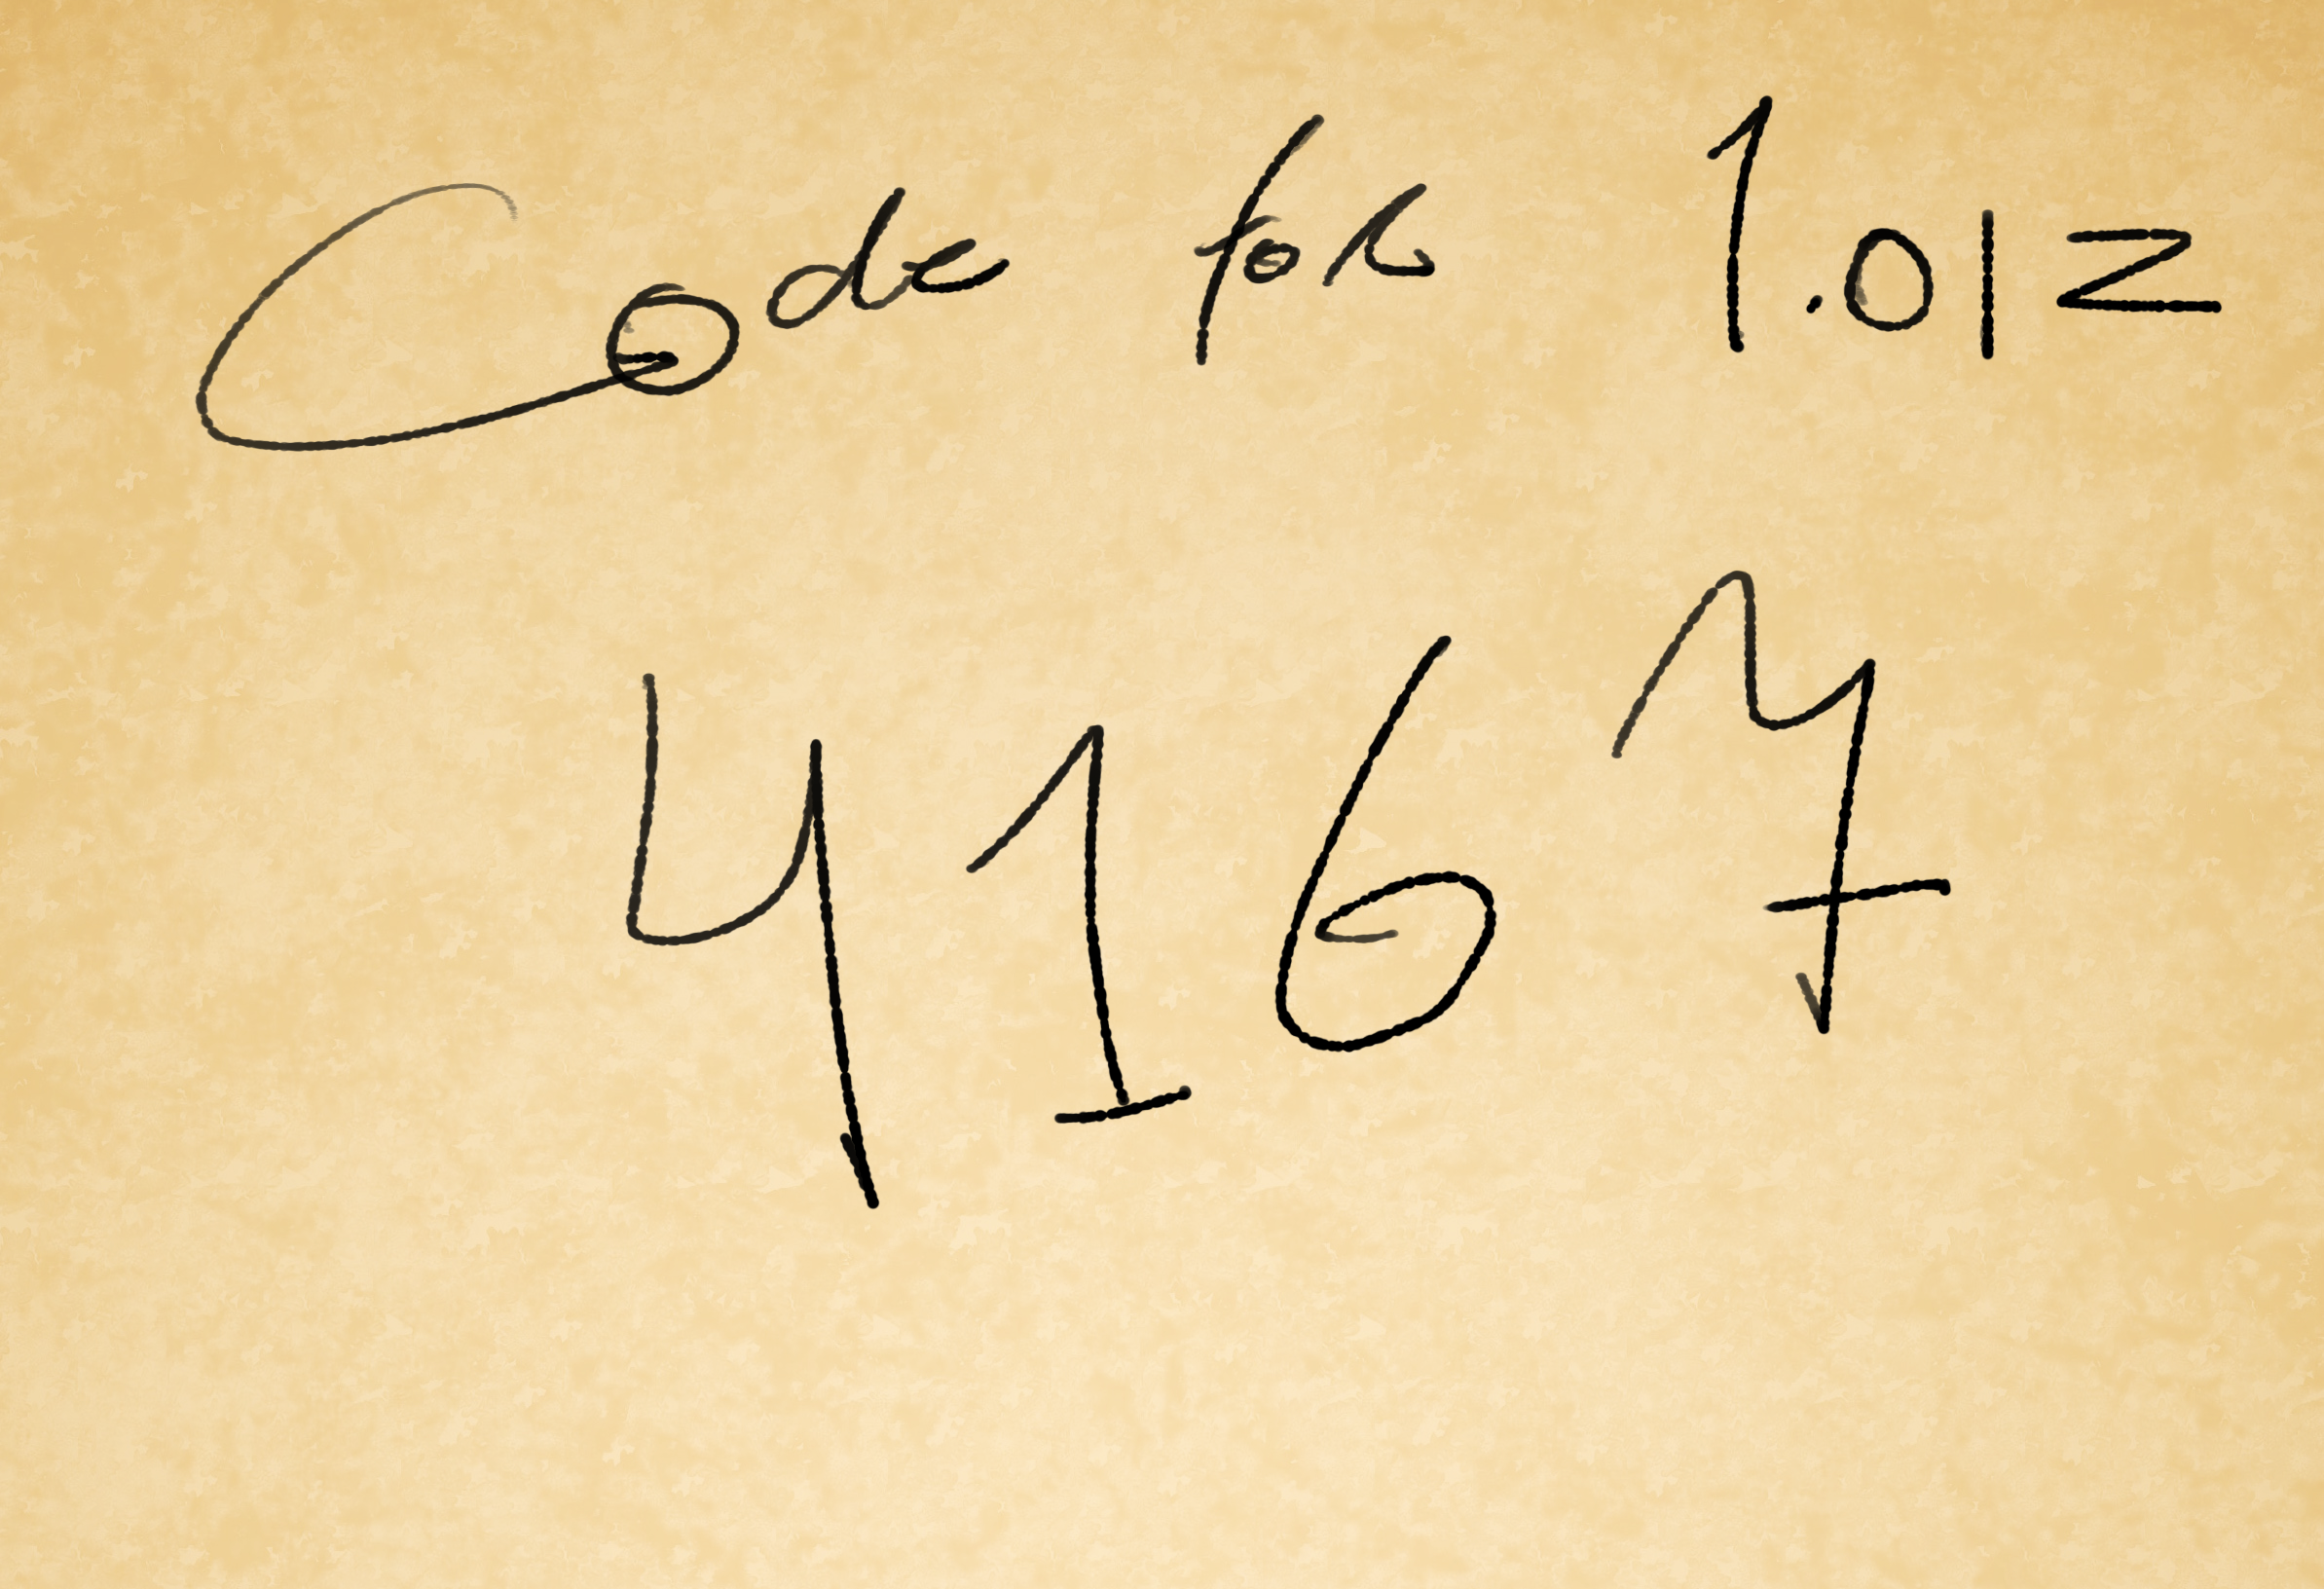 Code for 1.012
4167